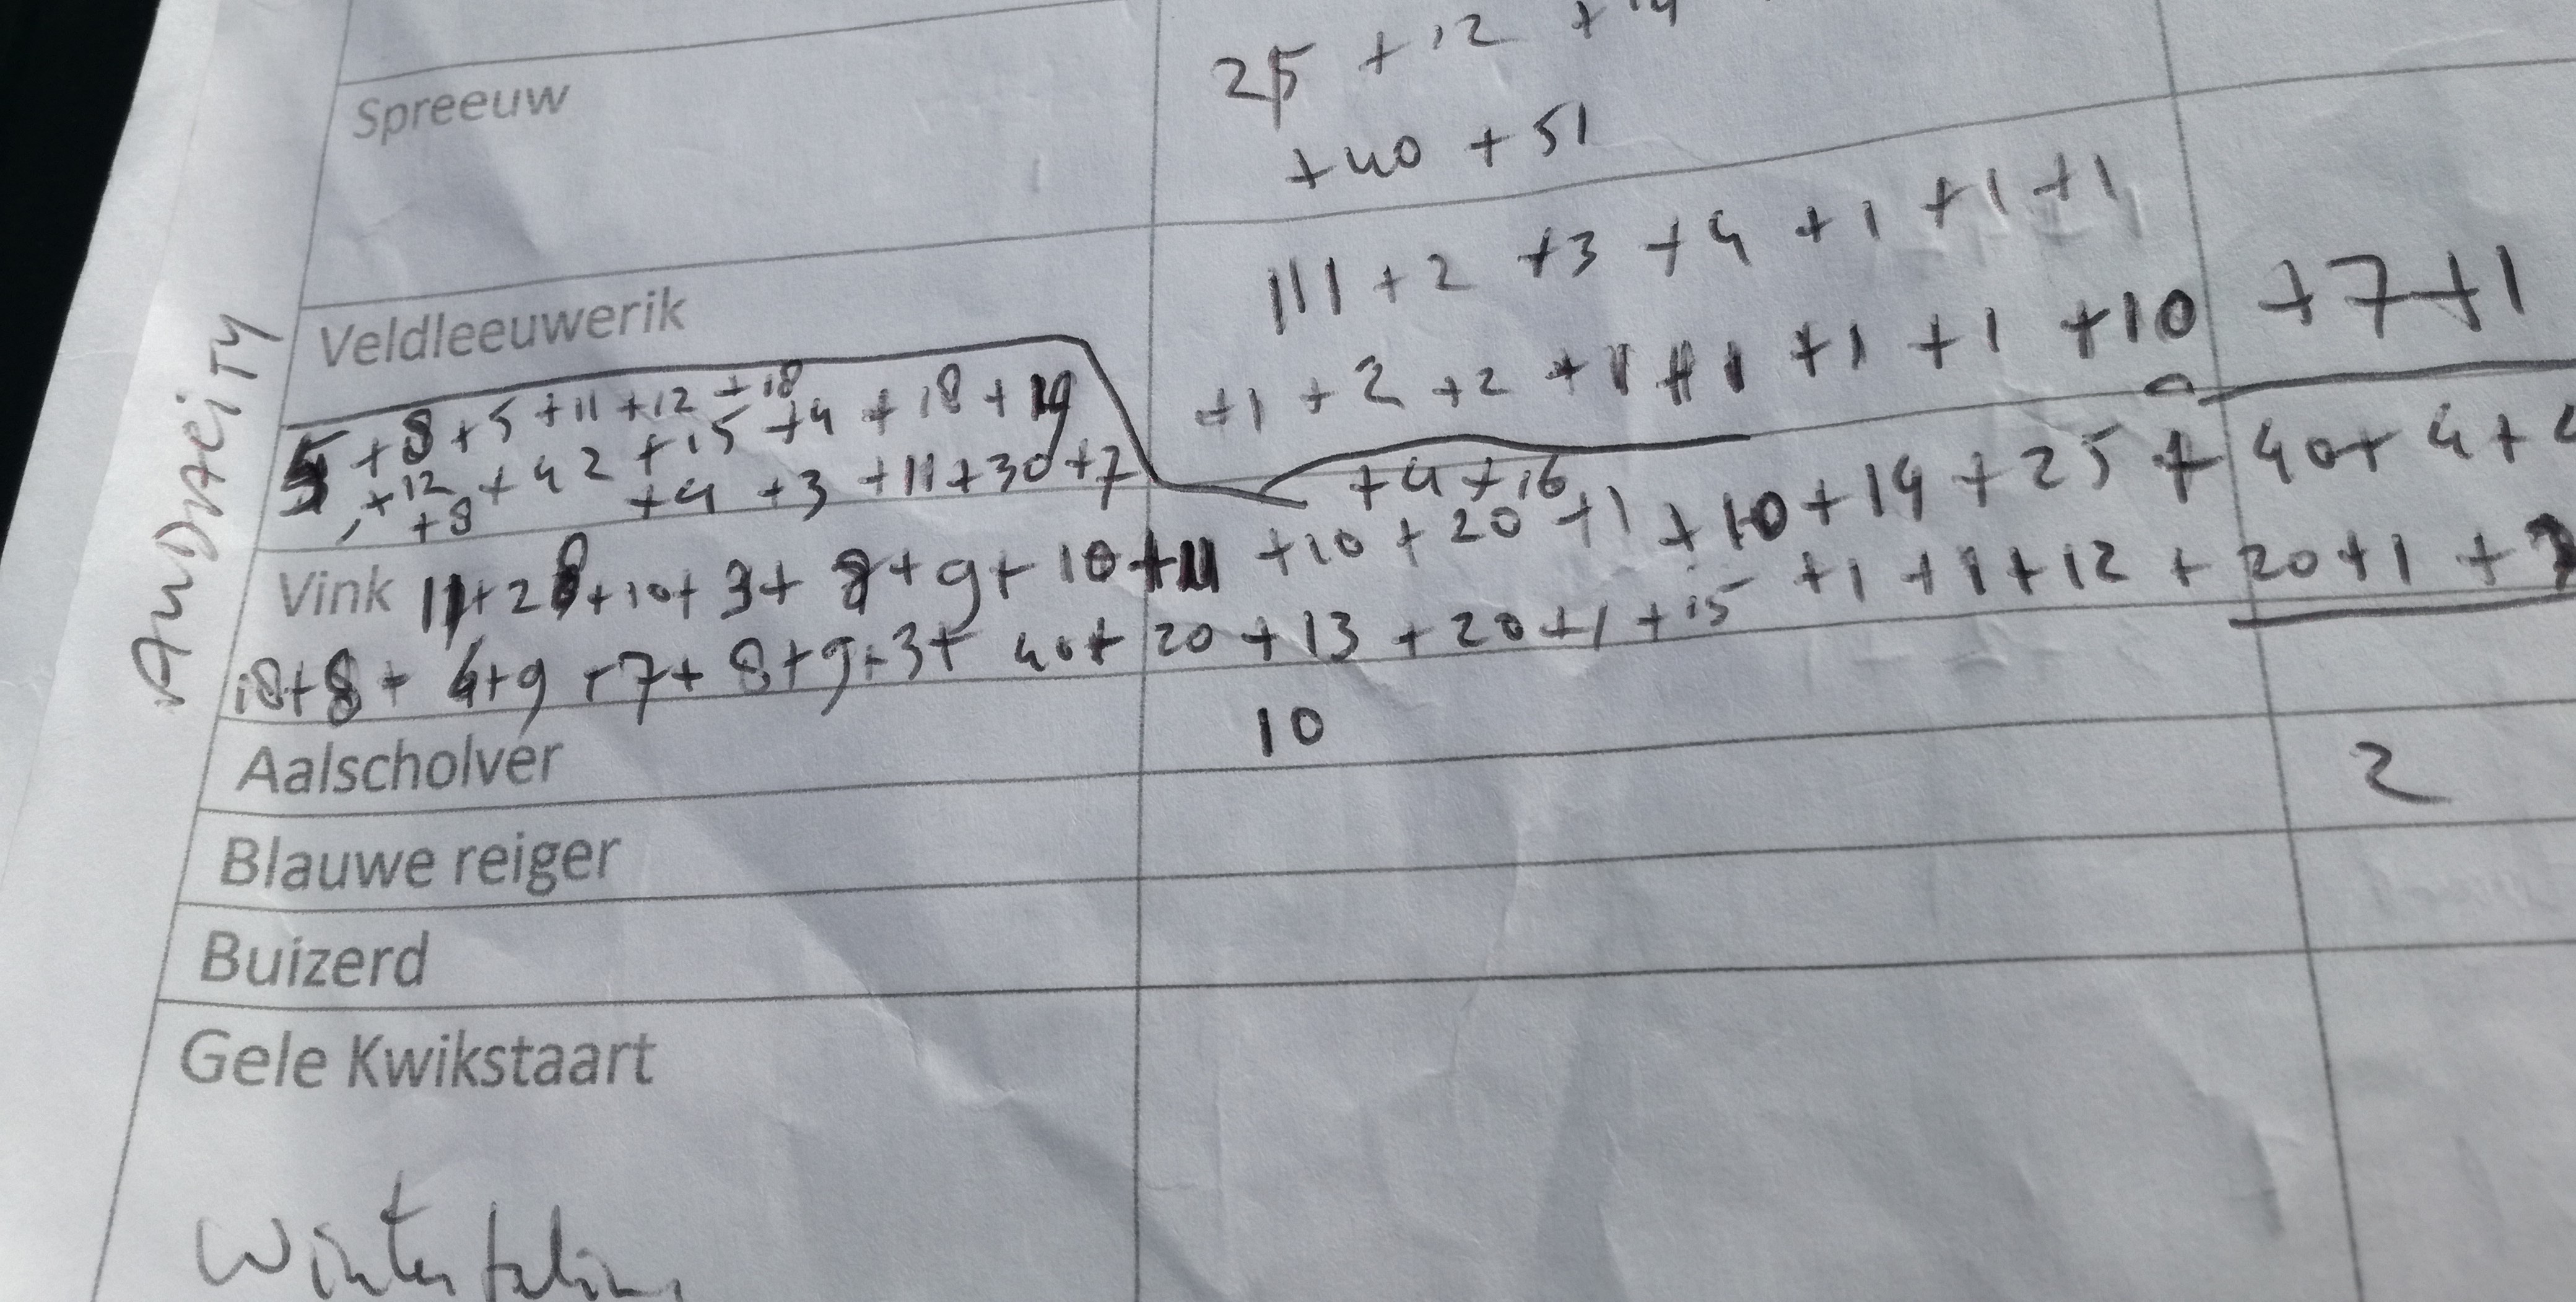 25 + 12 + 14
Spreeuw
+ 40 + 51
111 + 2 + 3 + 4 + 1 + 1 + 1
Veldleeuwerik
+1 + 2 + 2 + 1 +1 + 1 + 1 + 10 + 7 + 1
5 + 8 + 5 + 11 + 12 + 18
+ 12 + 42 + 15 + 4 + 18 + 19
+ 8 + 4 + 3 + 11 + 30 + 7
+ 4 + 16
Vink 11 + 28 + 10 + 3 + 8 + 9 + 10 + 11 + 10 + 20 + 1 + 10 + 14 + 25 + 40 + 4 +
18 + 8 + 4 + 9 + 7 + 8 + 9 + 3 + 40 + 20 + 13 + 20 + 1 + 15 + 1 + 1 + 12 + 20 + 1 +
Aalscholver 10
2
Blauwe reiger
Buizerd
Gele Kwikstaart
AUDACITY